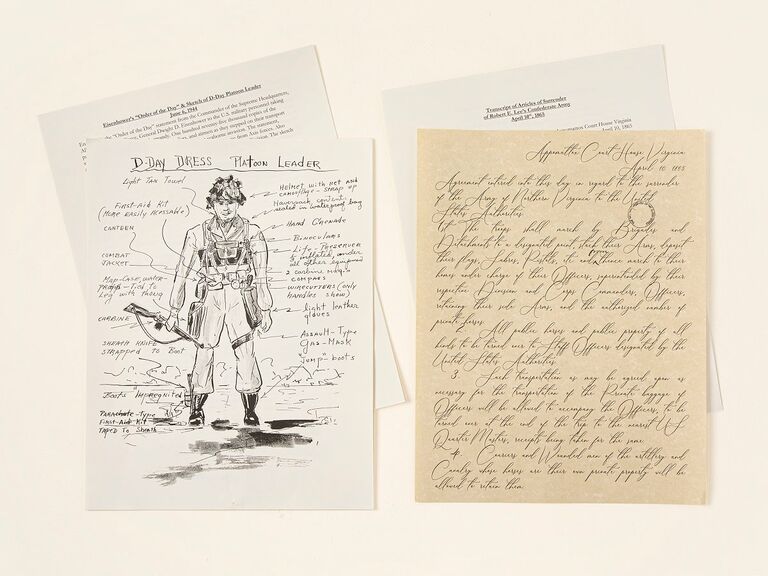 Eisenhower's "Order of the Day" & Sketch of D-Day Platoon Leader
June 6, 1944
"Order of the Day" statement from the Commander of the Supreme Headquarters,
General Dwight D. Eisenhower to the U.S. military personnel taking
One hundred seventy-five thousand copies of the
and airmen as they stepped on their transport
D-DAY DRESS PLATOON LEADER
Light Tax Towel
First-Aid Kit
(More easily accessable)
CANTEEN
COMBAT
JACKET
Map-Case, water-
proof - Tied to
Leg with thong
CARBINE
SHEATH KNIFE
STRAPPED TO BOOT
Boots "Impregnited"
Parachute-Type
First-Aid Kit
TAPED TO Sheath
Helmet with net and
camouflage - strap up
Haversack content
sealed in waterproof bag
Hand Grenade
Binoculars
Life-Preserver
to inflated, under
all other equipment
2 carbine mag's
compass
wirecutters (only
handles show)
light leather
gloves
Assault-Type
Gas-Mask
"Jump"-boots
Transcript of Articles of Surrender
of Robert E. Lee's Confederate Army
April 10th, 1865
Appomattox Court House Virginia
April 10, 1865
Appomattox Court House Virginia
April 10 1865
Agreement intered into this day in regard to the surrender
of the Army of Northern Virginia to the United
States Authorities.
1st The troops shall march by Brigades and
Detachments to a designated point, stack their Arms, deposit
their flags, Sabres, Pistols, etc. and march to their
homes under charge of their Officers, superintended by their
respective Division and Corps Commanders, Officers,
retaining their side Arms, and the authorized number of
private horses.
All public horses and public property of all
kinds to be turned over to Staff Officers designated by the
United States Authorities.
3. Such transportation as may be agreed upon as
necessary for the transportation of the Private baggage of
Officers will be allowed to accompany the Officers, to be
turned over at the end of the trip to the nearest U.S.
Quarter Masters, receipts being taken for the same.
4. Couriers and Wounded men of the artillery and
Cavalry whose horses are their own private property will be
allowed to retain them.